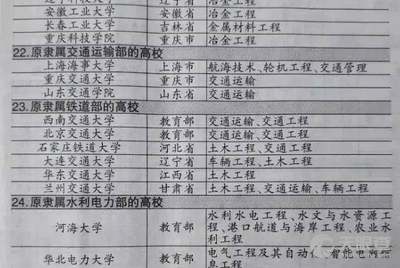 安徽工业大学 安徽省 冶金工程
长春工业大学 吉林省 金属材料工程
重庆科技学院 重庆市 冶金工程
22.原隶属交通运输部的高校
上海海事大学 上海市 航海技术、轮机工程、交通管理
重庆交通大学 重庆市 交通运输
山东交通学院 山东省 交通运输
23.原隶属铁道部的高校
西南交通大学 教育部 交通运输、交通工程
北京交通大学 教育部 交通运输、交通工程
石家庄铁道大学 河北省 土木工程、交通工程
大连交通大学 辽宁省 车辆工程、土木工程
华东交通大学 江西省 土木工程
兰州交通大学 甘肃省 土木工程、交通运输、车辆工程
24.原隶属水利电力部的高校
河海大学 教育部 水利水电工程、水文与水资源工
程、港口航道与海岸工程、农业水
利工程
华北电力大学 教育部 电气工程及其自动化、智能电网信
息工程